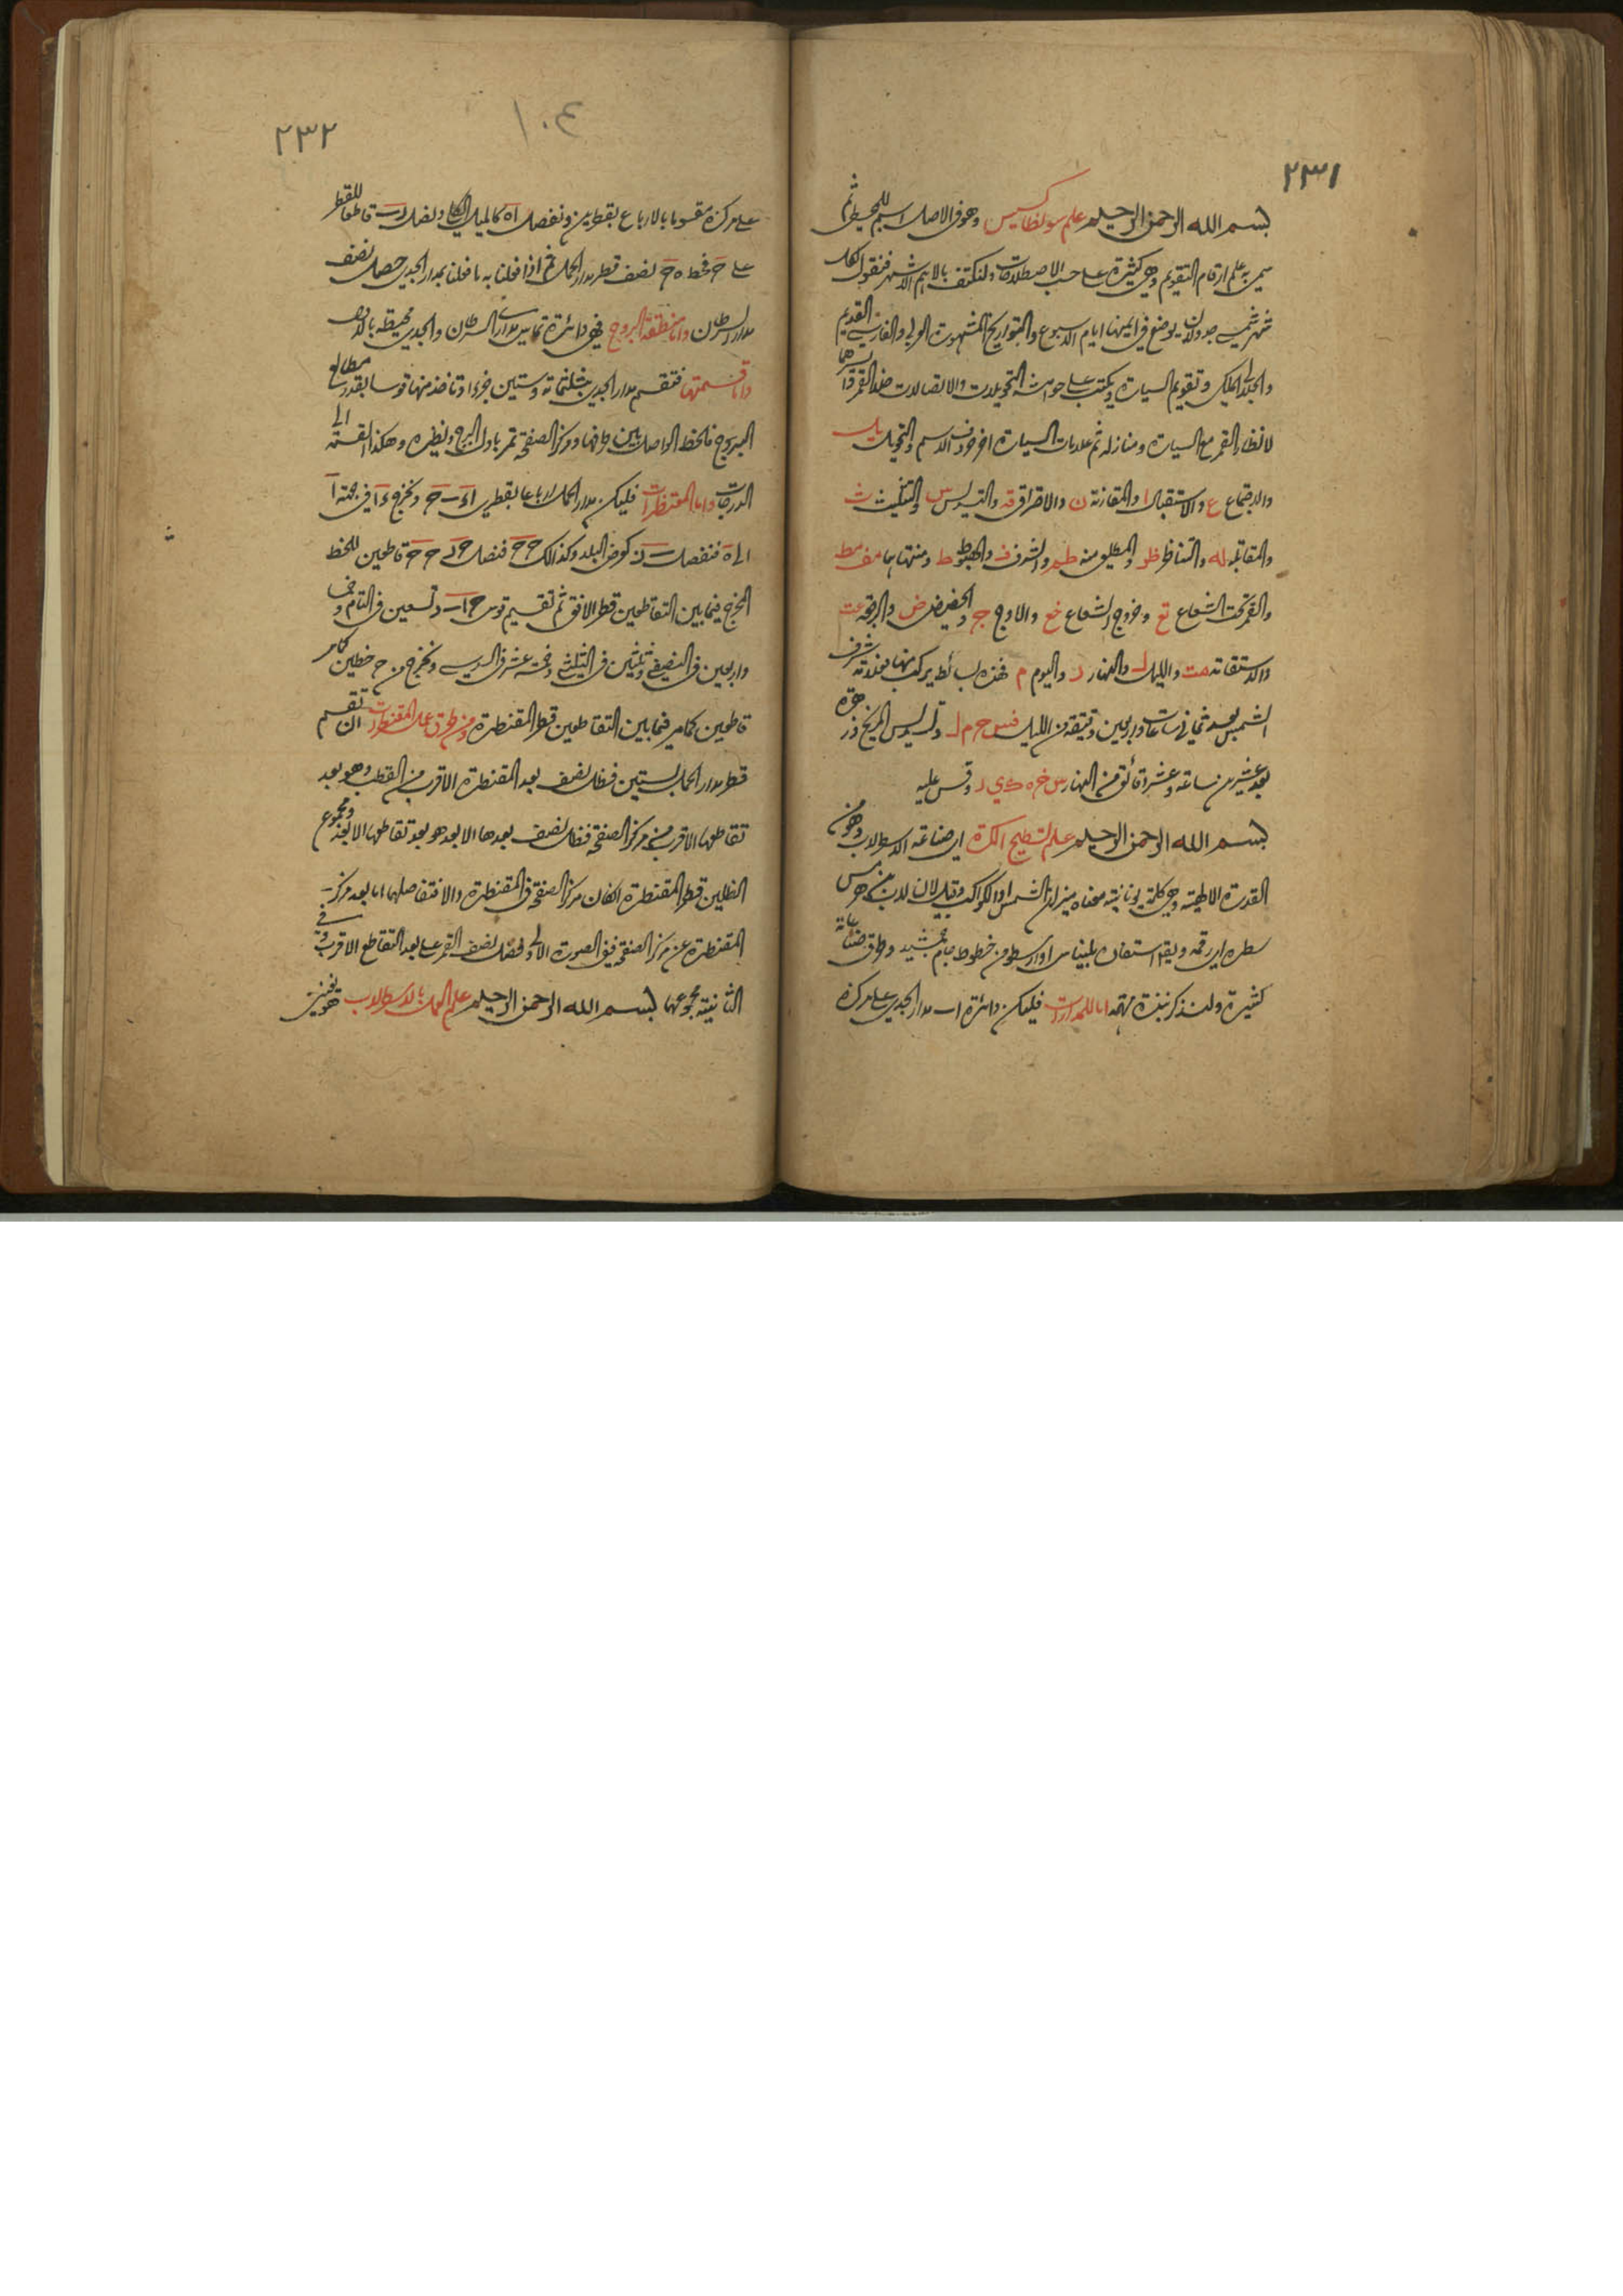 ٢٣١
بسم الله الرحمن الرحيم علم سولطاسيس وهو فى الاصل اسم للمحيط ثم
سمى به علم ارقام التقويم وهى كثيرة على حسب الاصطلاحات ولنكتف بالاهم الاشهر فنقول لكل
شهر شمسى جدولان يوضع فى ايمنها ايام الاسبوع والتواريخ المشهورة العربى والفارسى القديم
والجلالى الملكى وتقويم السيارة ويكتب على حواشيه التحويلات والاتصالات
لانظار القمر مع السيارة ومنازله ثم علامات السيارة اخر حروف الاسم والتحويل يل
والاجتماع ع والاستقبال ا والمقارنة ن والاحتراق قه والتسديس س والتثليث ث
والمقابلة له والتناظر ظر والمطلق منه طم والشرف ف والهبوط ط ومنتهاهما مف مط
والقمر تحت الشعاع تع وخروج الشعاع خع والاوج ج والحضيض ض والرجعة عت
والاستقامة مت والليل ل والنهار ر واليوم م فهذه بسائط يركب منها بعدته شرف
الشمس بعد ثمانى ساعات واربعين دقيقة من الليل فس ح م ل وتسديس المريخ وزهرة
بعد عشرين ساعة وعشر دقائق من النهار س خ ه ك ى ر وقس عليه
بسم الله الرحمن الرحيم علم تسطيح الكرة اى صناعة الاسطرلاب وهو من
القدرة الالهية وهى كلمة يونانية معناه ميزان الشمس او الكواكب وقيل لان لاب بن هرمس
سطره اى رقمه ويقال استعان بليناس او ارسطو من خطوط جام جمشيد وطرق صناعاته
كثيرة ولنذكر نبذة مهمة اما المدارات فليكن دائرة اب مدار الجدى على مركز ه
٢٣٢
١٠٤
على مركز ه مقسوما بالارباع بقطرين ونفصل اه كالميل الكلى ونصل قاطعا للقطر
على ح فخط ه ح نصف قطر مدار الحمل ثم اذا فعلنا به ما فعلنا بمدار الجدى حصل نصف
مدار السرطان واما منطقة البروج فهى دائرة تماس مدارى السرطان والجدى محيطة بالاول
واما قسمتها فتقسم مدار الجدى بثلثمائة وستين جزءا وتاخذ منها قوسا بقدر مطالع
البروج فالخط الواصل بين طرفها ومركز الصفحة تمر باول البرج ونظيره وهكذا القسمة الى
الدرجات واما المقنطرات فليكن مدار الحمل ارباعا بقطرى ا ء ب ح ونخرج ء ا فى جهة ا
الى ه فنفصل كعرض البلد وكذلك ح ح فنصل قاطعين للخط
المخرج فيما بين التقاطعين قطر الافق ثم تقسم قوس ح ا ب تسعين فى التام وخمسا
واربعين فى النصفى وثلثين فى الثلثى وخمسة عشر فى السدسى ونخرج من ح خطين كامر
قاطعين كمامر فيما بين التقاطعين قطر المقنطرة ومن طرق عمل المقنطرات ان تقسم
قطر مدار الحمل بستين فظل نصف بعد المقنطرة الاقرب من القطب وهو بعد
تقاطعها الاقرب من مركز الصفحة فظل نصف بعدها الابعد هو بعد تقاطعها الابعد ومجموع
الظلين قطر المقنطرة ان كان مركز الصفحة فى المقنطرة والا فتفاضلهما اما بعد مركز
المقنطرة عن مركز الصفحة ففى الصورة الاولى فضل نصف القطر على بعد التقاطع الاقرب وفى
الثانية مجموعهما بسم الله الرحمن الرحيم علم العمل بالاسطرلاب